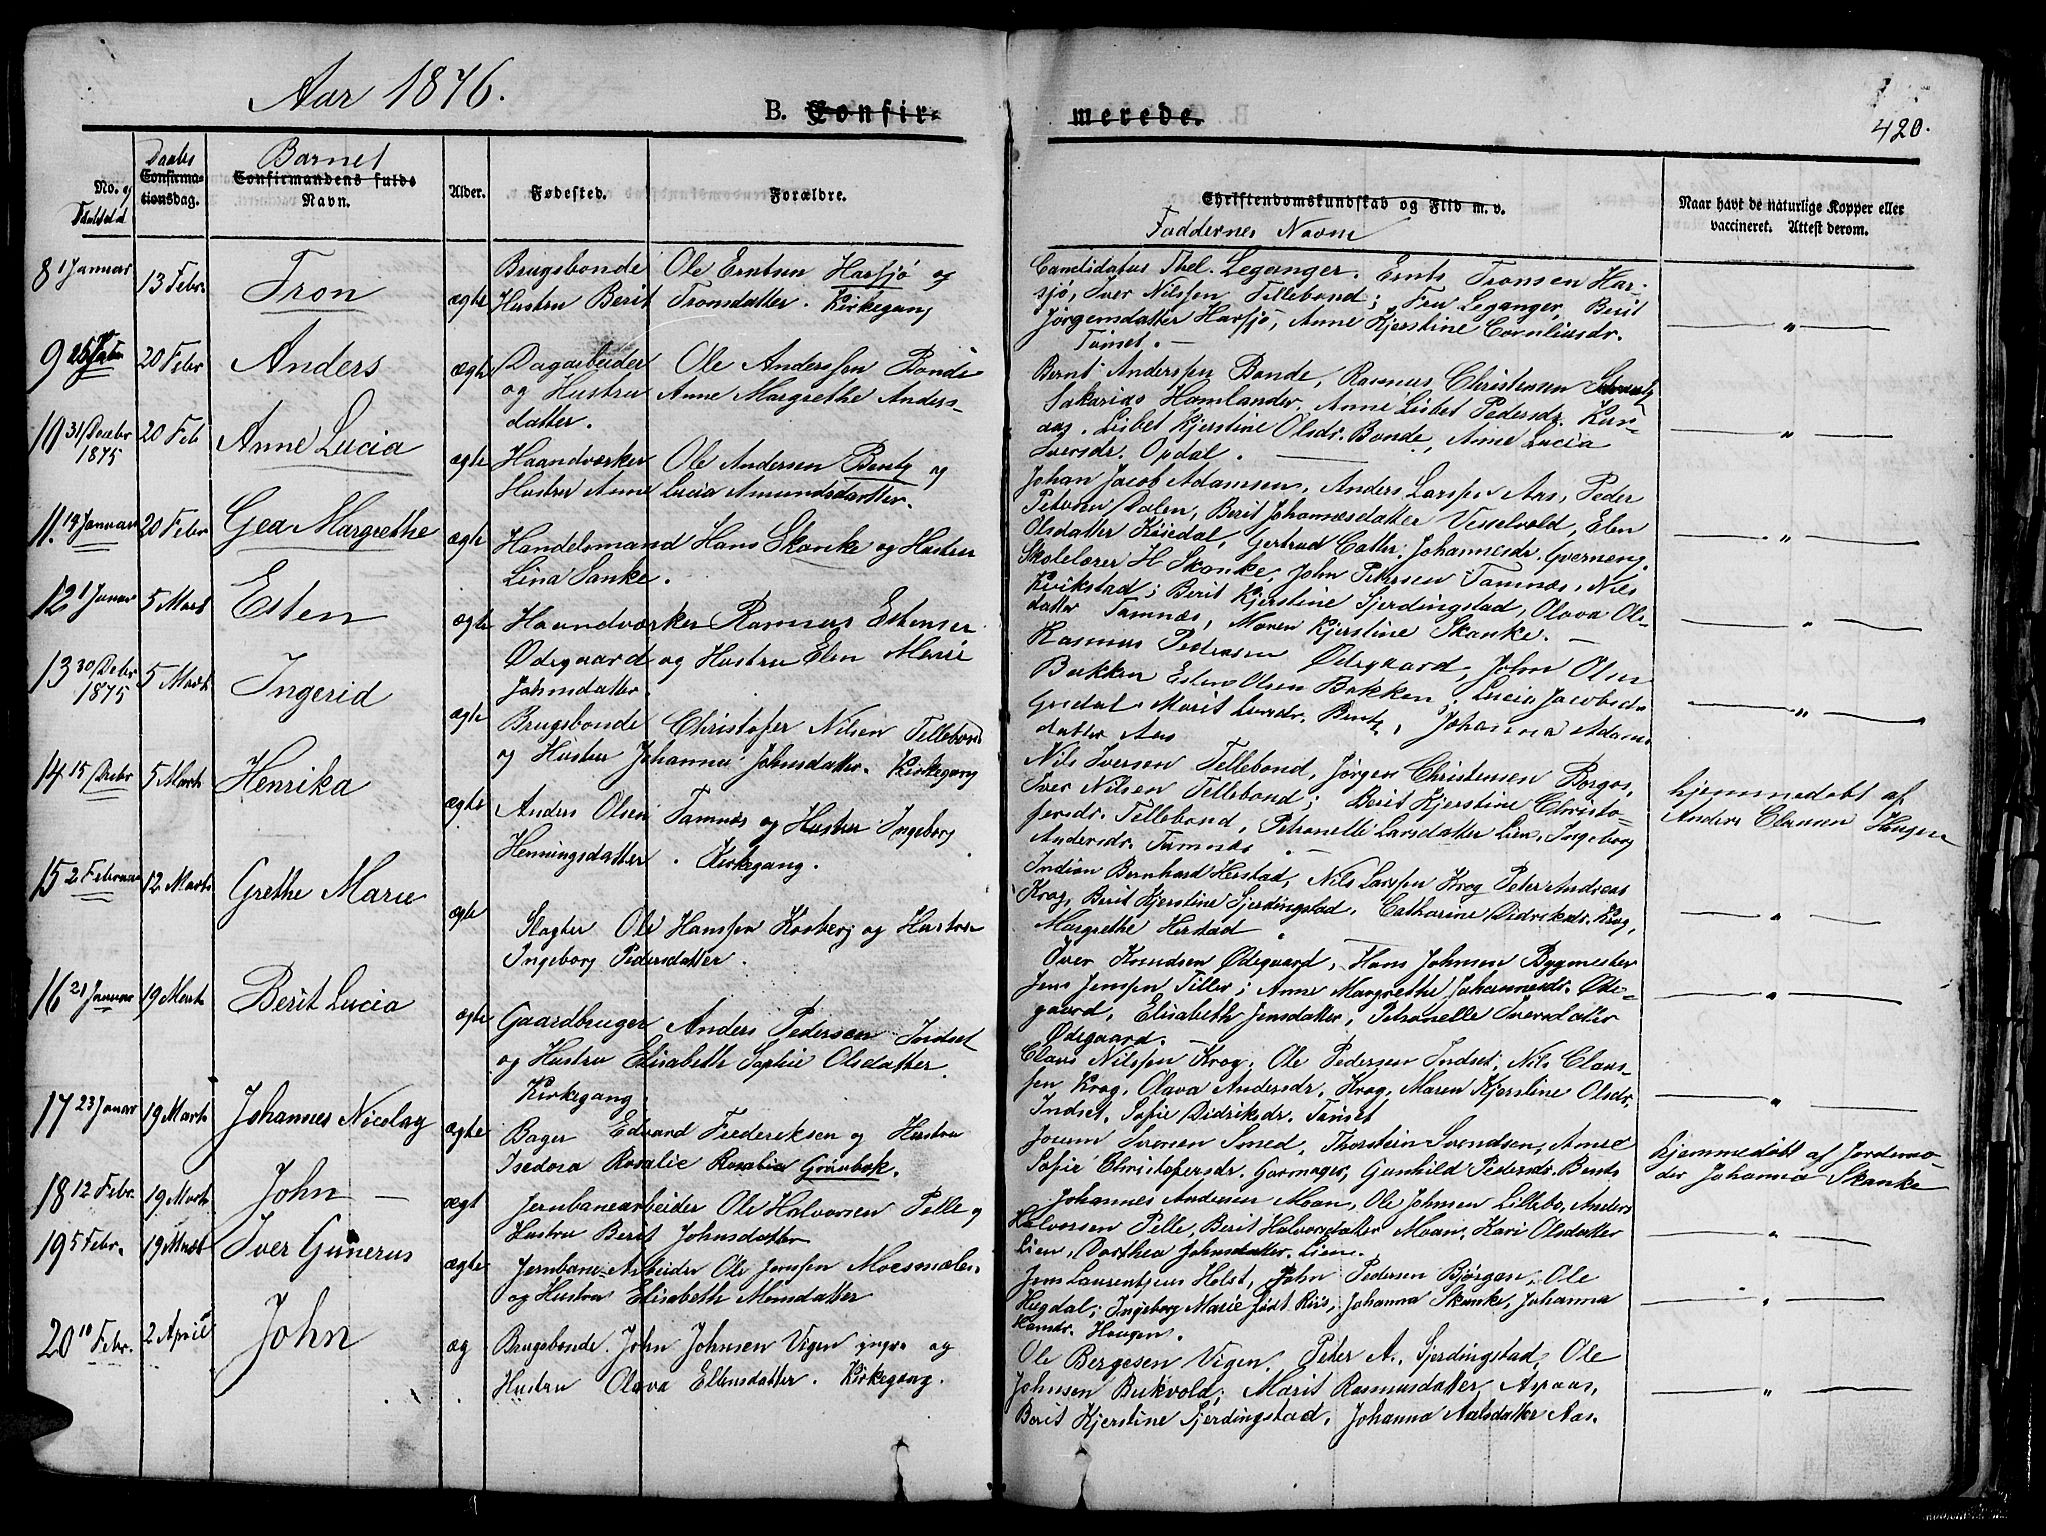 Aar 1876.
B. Confir-
merede.
420.
No. og
Daabs
Confirma-
tionsdag.
Barnet
Confirmandens fulde
Navn.
Alder.
Fødested.
Forældre.
Christendomskundskab og Flid m. v.
Faddernes Navne
Naar havt de naturlige Kopper eller
vaccineret. Attest derom.
8 1 Januar
13 Febr.
Tron
ægte
Brugsbonde Ole Erntsen Harsjø og
Hustru Berit Tronsdatter. Kirkegang
Candidatus Theol. Leganger. Ernts Tronsen Har-
sjø, Iver Nilssen Tillebond; Fru Leganger, Berit
Jørgensdatter Harsjø, Anne Kjerstine Cornliusdr.
Tamset. -
"
9
20 Febr
Anders
ægte
Dagarbeider Ole Anderssen Bonde
og Hustru Anne Margrethe Anders-
datter.
Bernt Anderssen Bonde, Rasmus Christensen
Sakarias Hamlander, Anne Lisbet Pedersdr. Kur-
aas. Lisbet Kjerstine Olsdr. Bonde, Anne Lucia
Iversdr. Opdal.
"
10 31/Decbr
1875
20 Feb
Anne Lucia
ægte
Haandværker Ole Andersen Bentz og
Hustru Anne Lucia Amundsdatter.
Johan Jacob Adamsen, Anders Larssen Aas, Peder
Petersen Dalen, Berit Johannesdatter Vesselvold, Elen
Olsdatter Kiisdal, Gertrud Cathr. Johannesdr. Gverneng.
"
11. 14 Januar
20 Febr
Gea Margrethe
ægte
Handelsmand Hans Skanke og Hustru
Lina Sanke.
Skolelærer H Skanke, John Petersen Tamnæs, Nils
Kvikstad; Berit Kjerstine Sjerdingstad, Olava Ols-
datter Tamnæs, Maren Kjerstine Skanke. -
"
12 1 Januar
5 Marts
Esten
ægte
Haandværker Rasmus Estensen
Ødegaard og Hustru Elen Marie
Johnsdatter.
Rasmus Pedersen Ødegaard, John Olsen
Bakken Esten Olsen Bakken; Lucia Jacobsd.
Gjedal. Marit Iversdr. Bentz, Johanna Adams
datter Aas
"
13 30/Decbr
1875
5 Marts
Ingerid
ægte
Brugsbonde Christofer Nilsen Tellebond
og Hustru Johanna Johnsdatter. Kirkegang
Nils Iversen Tellebond, Jørgen Christensen Borgos,
Iver Nilsen Tellebond; Berit Kjerstine Christo-
fersdr. Tellebond, Petronelle Larsdatter Lien, Ingeborg
Andersdr. Tamnæs. -
14 15/Decbr
5 Marts
Henrika
ægte
Anders Olsen Tamnæs og Hustru Ingeborg
Henningsdatter. Kirkegang.
Indian Bernhard Herstad, Nils Larssen Krog Peter Andreas
Krog, Berit Kjerstine Sjerdingstad, Catharine Didriksdr. Krog,
Margrethe Herstad
hjemmedøbt af
Anders Clausen Haugen
"
15 2 Februar
12 Marts
Grethe Marie
ægte
Slagter Ole Hanssen Kosberg og Hustru
Ingeborg Pedersdatter.
Iver Knudsen Ødegaard, Hans Johnsen Bygmester
Jens Jenssen Tiller; Anne Margrethe Johannesdr. Øde-
gaard, Elisabeth Jensdatter, Petronelle Iversdatter
Ødegaard. -
"
16 21 Januar
19 Marts
Berit Lucia
ægte
Gaardbruger Anders Pedersen Indset
og Hustru Elisabeth Sophie Olsdatter.
Kirkegang.
Claus Nilssen Krog, Ole Pedersen Indset; Nils Claus-
sen Krog, Olava Andersdr. Krog, Maren Kjerstine Olsdr,
Indset, Sofie Didriksdr. Tamset
"
17 23 Januar
19 Marts
Johannes Nicolay
ægte
Bager Edvard Frederiksen og Hustru
Isedora Rosalie Rosalia Grønbek.
Joum Svensen Smed, Thorstein Svendsen, Anne
Sofie Christofersdr. Garmager, Gunhild Pedersdr. Bents
hjemmedøbt af Jordemo-
der Johanna Skanke
18 12 Febr.
19 Marts
John -
ægt
Jernbanearbeider Ole Halvorsen Pelle og
Hustru Berit Johnsdatter
Johannes Andersen Moan, Ole Johnsen Lillebo, Anders
Halvorsen Pelle, Berit Halvorsdatter Moan, Kari Olsdatter
Lien, Dorthea Johnsdatter Lien.
"
19 5 Febr.
19 Marts
Iver Gunerus
ægte
Jernbane-Arbeider Ole Jonssen Moesmælen
og Hustru Elisabeth Monsdatter
Jens Laurentius Holst, John Pedersen Bjørgan, Ole
Hugdal; Ingeborg Marie født Riis, Johanna Skanke, Johanna
Hansdr. Haugen.
"
20 10 Febr.
2 April
John
æg
Brugsbonde. John Johnsen Vigen yngre og
Hustru Olava Ellensdatter. Kirkegang.
Ole Bergesen Vigen. Peter A. Sjerdingstad, Ole
Johnsen Bukvold; Marit Rasmusdatter Aspaas,
Berit Kjerstine Sjerdingstad, Johanna Nilsdatter Aas.
"